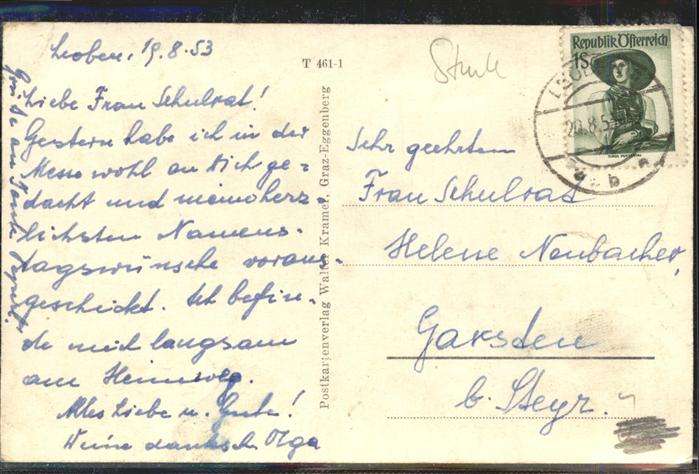 Leoben, 19.8.53
Liebe Frau Schulrat!
Gestern habe ich in der
Messe wohl an Dich ge-
dacht und meine herz-
lichsten Namens-
tagswünsche voraus-
geschickt. Ich befin-
de mich langsam
am Heimweg.
Alles Liebe u. Gute!
Deine dankb. Olga
T 461-1
Postkartenverlag Walter Kramer, Graz-Eggenberg
Republik Österreich
1S
20.8.53
Sehr geehrten
Frau Schulrat
Helene Neubacher,
Garsten
b. Steyr.